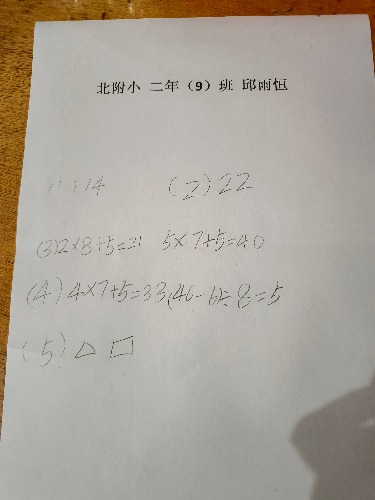 北附小 二年（9）班 邱雨恒
(1) 14 (2) 22
(3) 2×8+5=21 5×7+5=40
(4) 4×7+5=33 (46-6)÷8=5
(5) △ □